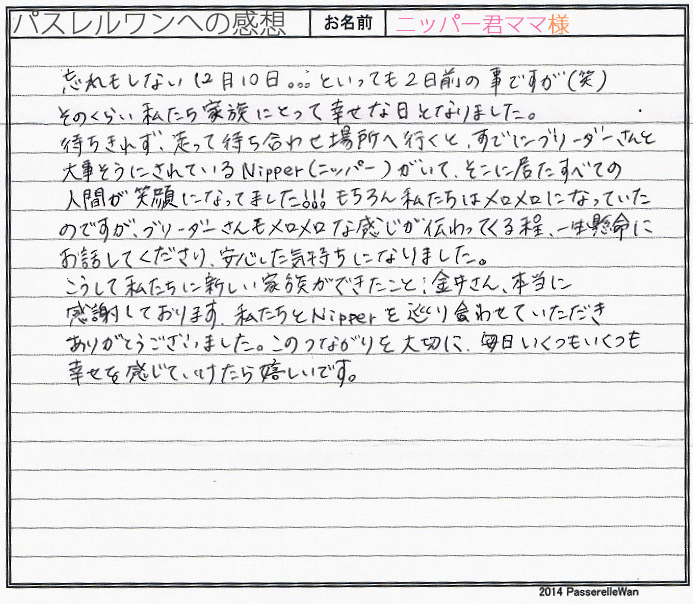 パスレルワンへの感想 お名前 ニッパー君ママ様
忘れもしない12月10日…といっても2日前の事ですが(笑)
そのくらい私たち家族にとって幸せな日となりました。
待ちきれず、走って待ち合わせ場所へ行くと、すでにブリーダーさんと
大事そうにされているNipper(ニッパー)がいて、そこに居たすべての
人間が笑顔になってました!!!もちろん私たちはメロメロになっていた
のですが、ブリーダーさんもメロメロな感じが伝わってくる程、一生懸命に
お話してくださり、安心した気持ちになりました。
こうして私たちに新しい家族ができたこと;金井さん、本当に
感謝しております。私たちとNipperを巡り会わせていただき
ありがとうございました。このつながりを大切に、毎日いくつもいくつも
幸せを感じていけたら嬉しいです。
2014 PasserelleWan